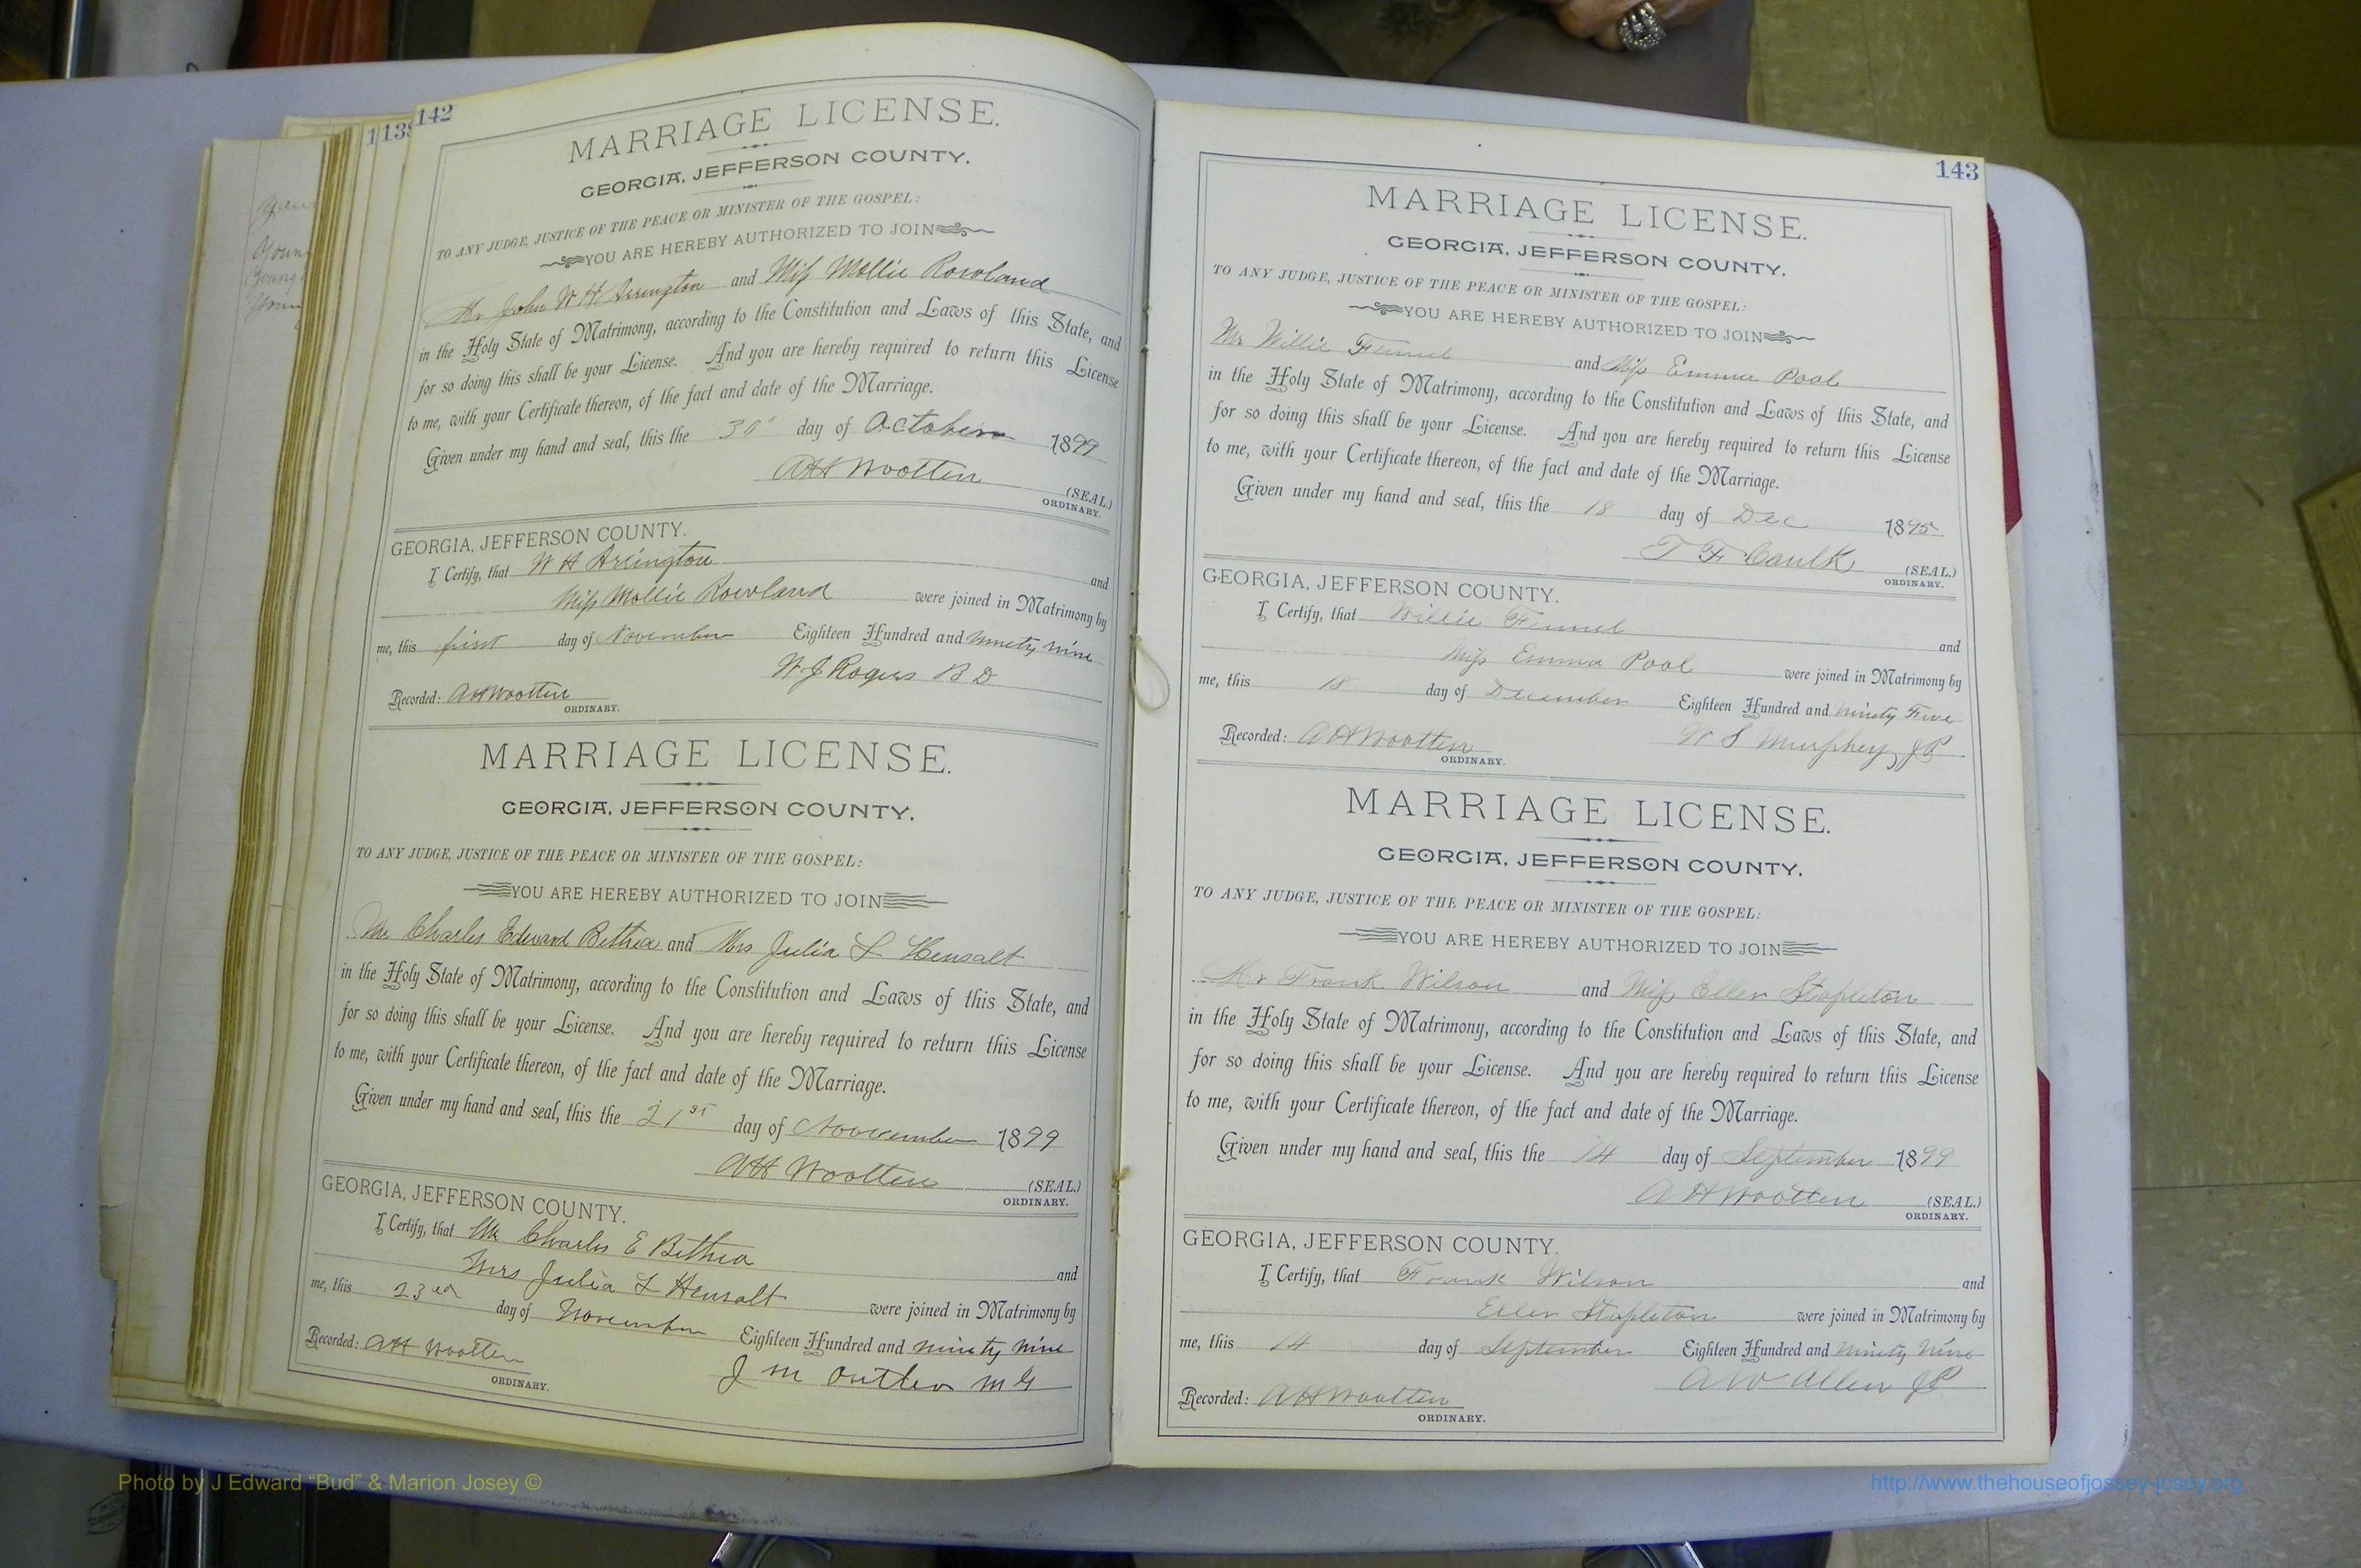 142
MARRIAGE LICENSE.
GEORGIA, JEFFERSON COUNTY.
TO ANY JUDGE, JUSTICE OF THE PEACE OR MINISTER OF THE GOSPEL:
YOU ARE HEREBY AUTHORIZED TO JOIN
Mr John W H Arrington and Miss Mollie Rowland
in the Holy State of Matrimony, according to the Constitution and Laws of this State, and
for so doing this shall be your License. And you are hereby required to return this License
to me, with your Certificate thereon, of the fact and date of the Marriage.
Given under my hand and seal, this the 30" day of October 1899
AH Wootten (SEAL.)
ORDINARY.
GEORGIA, JEFFERSON COUNTY.
I Certify, that W H Arrington and
Miss Mollie Rowland were joined in Matrimony by
me, this first day of November Eighteen Hundred and ninety nine
W J Rogers B D
Recorded: AH Wootten
ORDINARY.
MARRIAGE LICENSE.
GEORGIA, JEFFERSON COUNTY.
TO ANY JUDGE, JUSTICE OF THE PEACE OR MINISTER OF THE GOSPEL:
YOU ARE HEREBY AUTHORIZED TO JOIN
Mr Charles Edward Bethea and Mrs Julia L Hensalt
in the Holy State of Matrimony, according to the Constitution and Laws of this State, and
for so doing this shall be your License. And you are hereby required to return this License
to me, with your Certificate thereon, of the fact and date of the Marriage.
Given under my hand and seal, this the 21st day of November 1899
AH Wootten (SEAL.)
ORDINARY.
GEORGIA, JEFFERSON COUNTY.
I Certify, that Mr Charles E Bethea
Mrs Julia L Hensalt and
were joined in Matrimony by
me, this 23rd day of November Eighteen Hundred and ninety nine
Recorded: AH Wootten J M Outler M G
ORDINARY.
143
MARRIAGE LICENSE.
GEORGIA, JEFFERSON COUNTY.
TO ANY JUDGE, JUSTICE OF THE PEACE OR MINISTER OF THE GOSPEL:
YOU ARE HEREBY AUTHORIZED TO JOIN
Mr Willie Fennel and Miss Emma Pool
in the Holy State of Matrimony, according to the Constitution and Laws of this State, and
for so doing this shall be your License. And you are hereby required to return this License
to me, with your Certificate thereon, of the fact and date of the Marriage.
Given under my hand and seal, this the 18 day of Dec 1895
T F Caulk (SEAL.)
ORDINARY.
GEORGIA, JEFFERSON COUNTY.
I Certify, that Willie Fennel and
Miss Emma Pool were joined in Matrimony by
me, this 18 day of December Eighteen Hundred and ninety Five
W S Murphey JP
Recorded: AH Wootten
ORDINARY.
MARRIAGE LICENSE.
GEORGIA, JEFFERSON COUNTY.
TO ANY JUDGE, JUSTICE OF THE PEACE OR MINISTER OF THE GOSPEL:
YOU ARE HEREBY AUTHORIZED TO JOIN
Mr Frank Wilson and Miss Ellen Stapleton
in the Holy State of Matrimony, according to the Constitution and Laws of this State, and
for so doing this shall be your License. And you are hereby required to return this License
to me, with your Certificate thereon, of the fact and date of the Marriage.
Given under my hand and seal, this the 14 day of September 1899
A H Wootten (SEAL.)
ORDINARY.
GEORGIA, JEFFERSON COUNTY.
I Certify, that Frank Wilson and
Ellen Stapleton were joined in Matrimony by
me, this 14 day of September Eighteen Hundred and ninety nine
A W Allen JP
Recorded: AH Wootten
ORDINARY.
Photo by J Edward “Bud” & Marion Josey ©
http://www.thehouseofjossey-josey.org